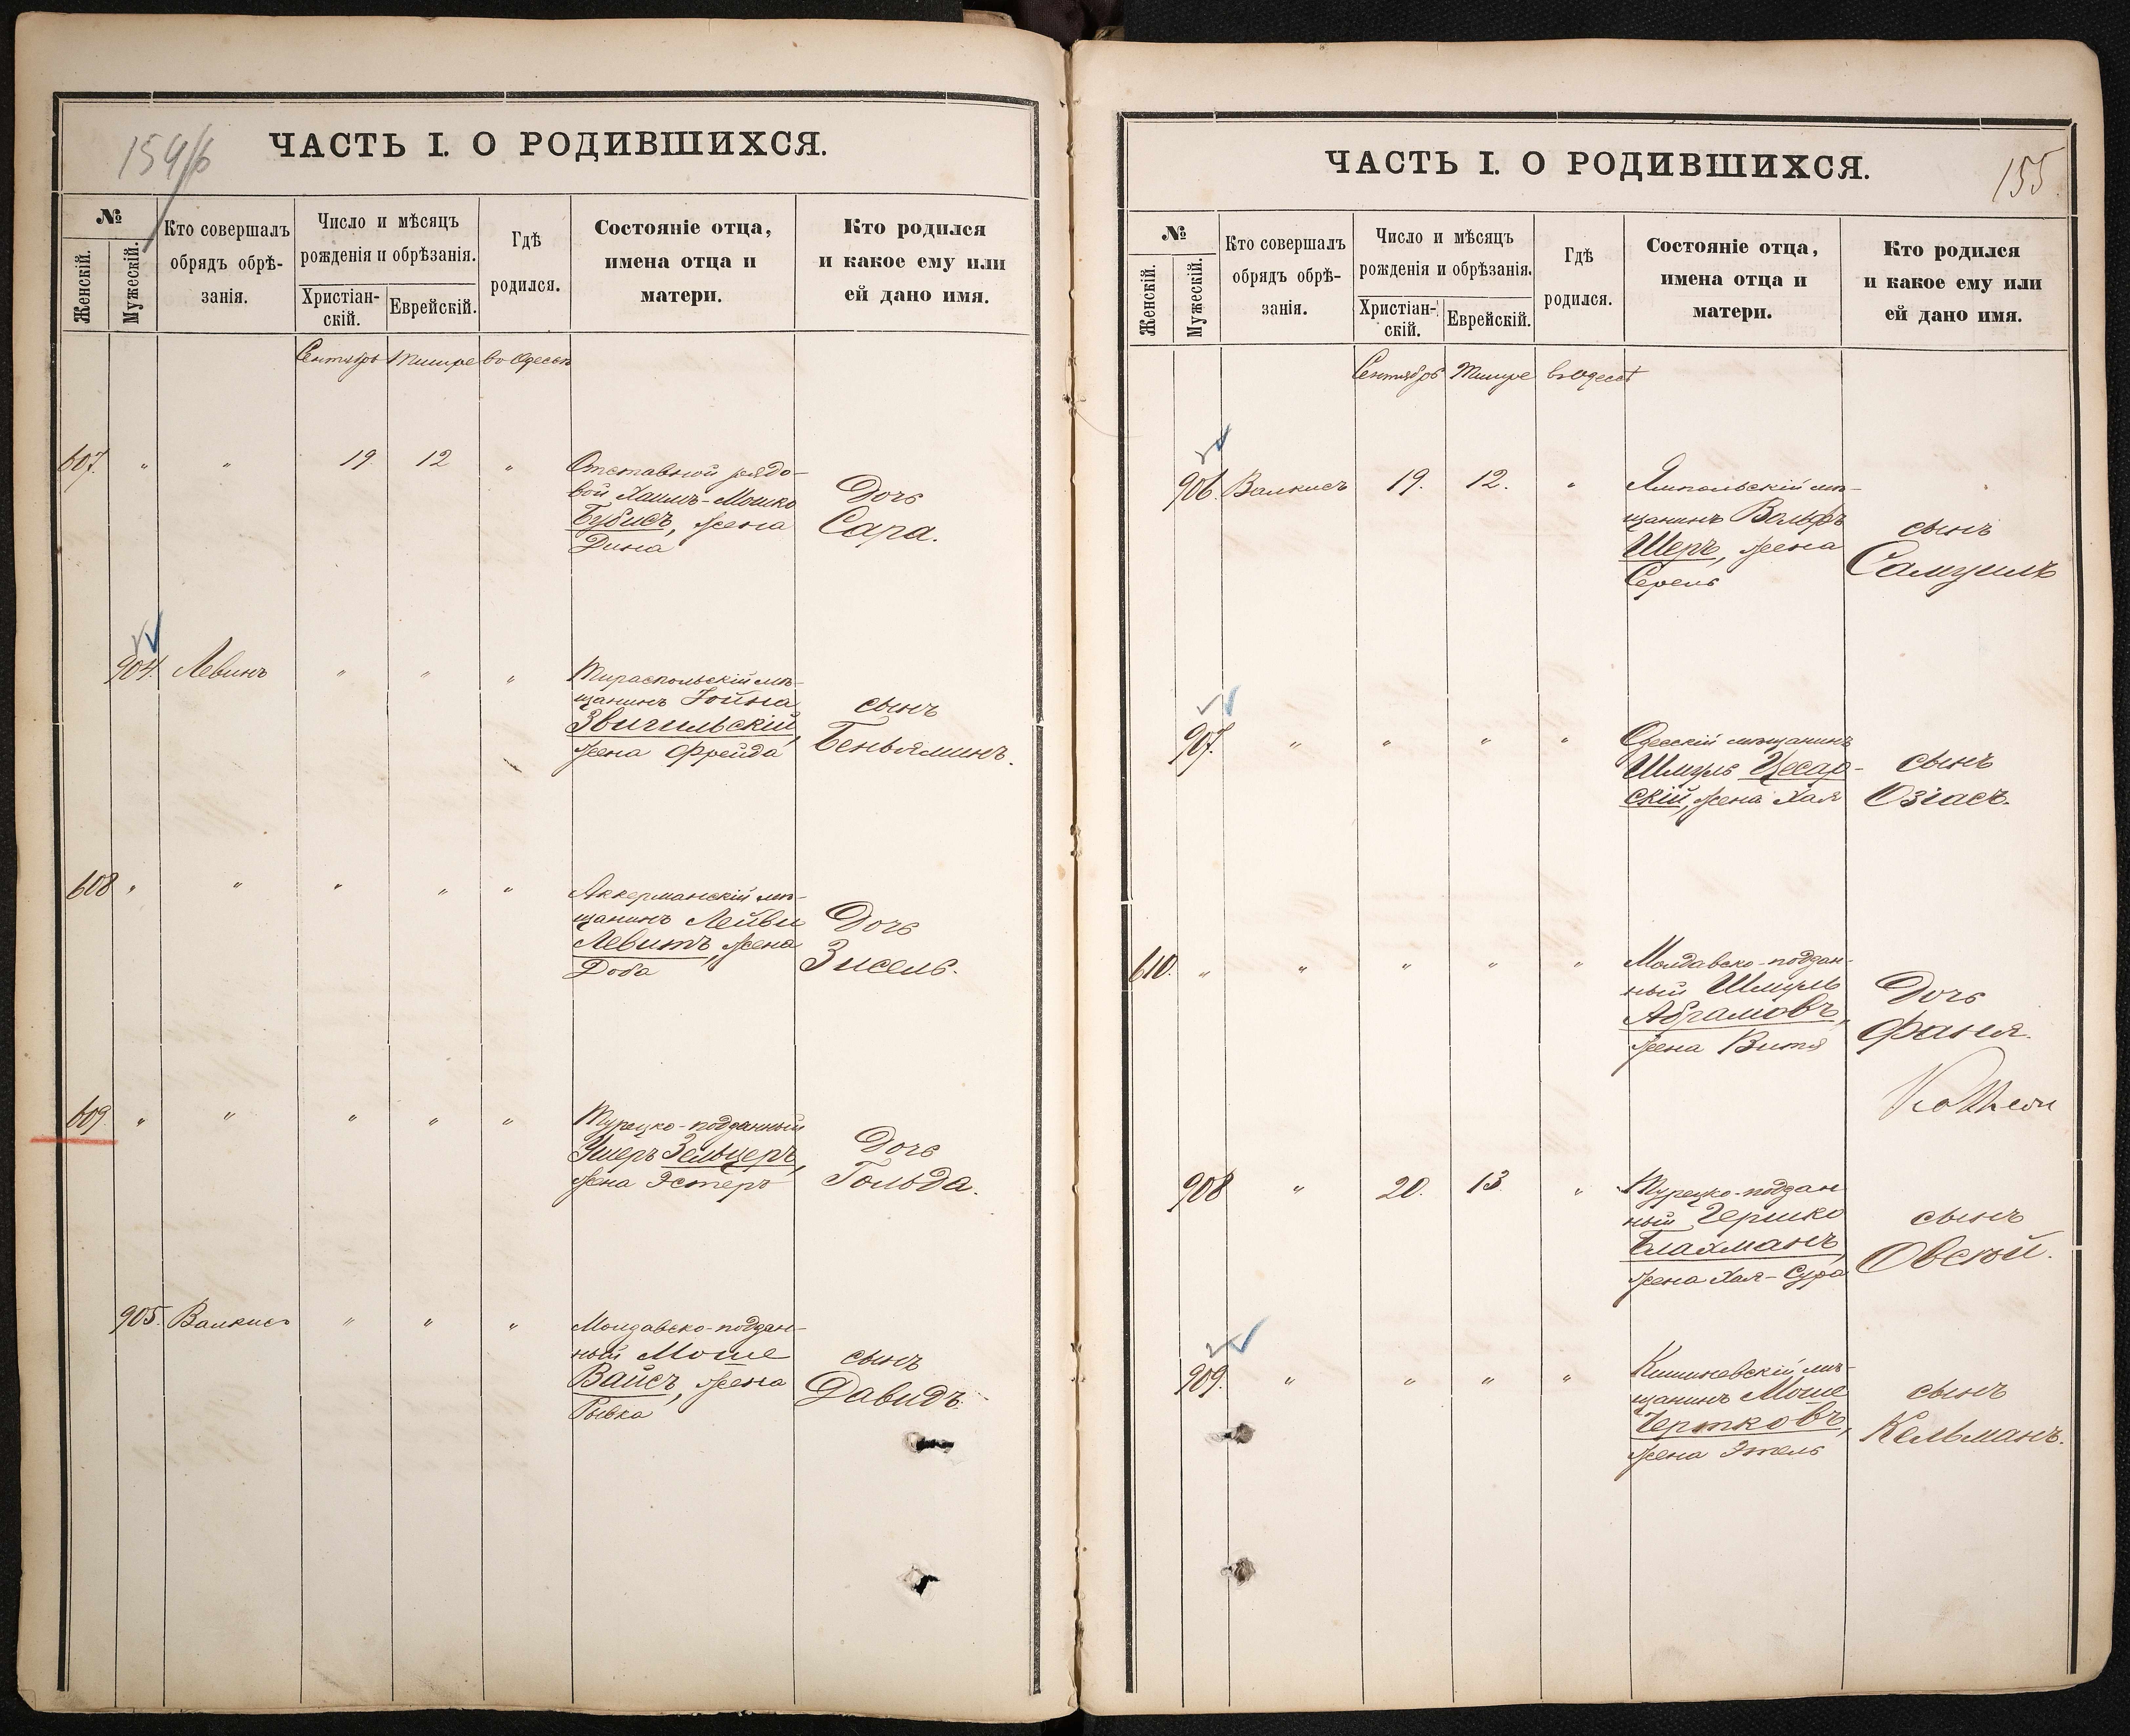 154/б
ЧАСТЬ I. О РОДИВШИХСЯ.
№
Женскій.
Мужескій.
Кто совершалъ
обрядъ обрѣ-
занія.
Число и мѣсяцъ
рожденія и обрѣзанія.
Христіан-
скій.
Еврейскій.
Гдѣ
родился.
Состояніе отца,
имена отца и
матери.
Кто родился
и какое ему или
ей дано имя.
Сентябрь Тишре въ Одессѣ
607. " " 19. 12 " Отставной рядо-
вой Хаимъ-Мошко
Бубисъ, жена
Дина
Дочь
Сара.
904. Левинъ " " " Тираспольскій мѣ-
щанинъ Іойна
Звигильскій,
жена Фрейда
сынъ
Беньяминъ.
608 " " " " " Аккерманскій мѣ-
щанинъ Лейви
Левитъ, жена
Доба
Дочь
Зисель.
609. " " " " " Турецко-подданный
Ушеръ Зельцеръ,
жена Эстеръ
Дочь
Гольда.
905. Валкисъ " " " Молдавско-поддан-
ный Моше
Вайсъ, жена
Рывка
сынъ
Давидъ.
155.
ЧАСТЬ I. О РОДИВШИХСЯ.
№
Женскій.
Мужескій.
Кто совершалъ
обрядъ обрѣ-
занія.
Число и мѣсяцъ
рожденія и обрѣзанія.
Христіан-
скій.
Еврейскій.
Гдѣ
родился.
Состояніе отца,
имена отца и
матери.
Кто родился
и какое ему или
ей дано имя.
Сентябрь Тишре въ Одессѣ
906. Валкисъ 19. 12. " Ямпольскій мѣ-
щанинъ Вольфъ
Шеръ, жена
Серель
сынъ
Самуилъ
907. " " " " Одесскій мѣщанинъ
Шмуль Цесар-
скій, жена Хая
сынъ
Озіасъ.
610. " " " " " Молдавско-поддан-
ный Шмуль
Абрамовъ,
жена Витя
Дочь
Фаня.
908 " 20. 13. " Турецко-поддан
ный Гершко
Блахманъ,
жена Хая-Сура
сынъ
Овсѣй.
909. " " " " Кишиневскій мѣ-
щанинъ Моше
Чертковъ,
жена Этель
сынъ
Кельманъ.